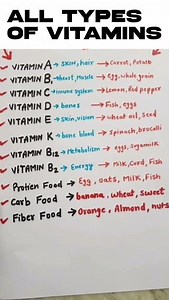 ALL TYPES
OF VITAMINS
VITAMIN A → Skin, hair → Carrot, Potato
VITAMIN B₁ → heart, Muscle → Egg, whole grain
VITAMIN C → imune system → Lemon, Red papper
VITAMIN D → bones → Fish, eggs
VITAMIN E → Skin, vision → wheat oil, Seed
VITAMIN K → bone blood → Spinach, brocalli
VITAMIN B₁₂ → Metabolism → eggs, soyamilk
VITAMIN B₂ → Energy → Milk, Curd, Fish
Protien Food → Egg, oats, Milk, Fish
Carb Food → banana, wheat, Sweet
Fiber Food → Orange, Almond, nuts